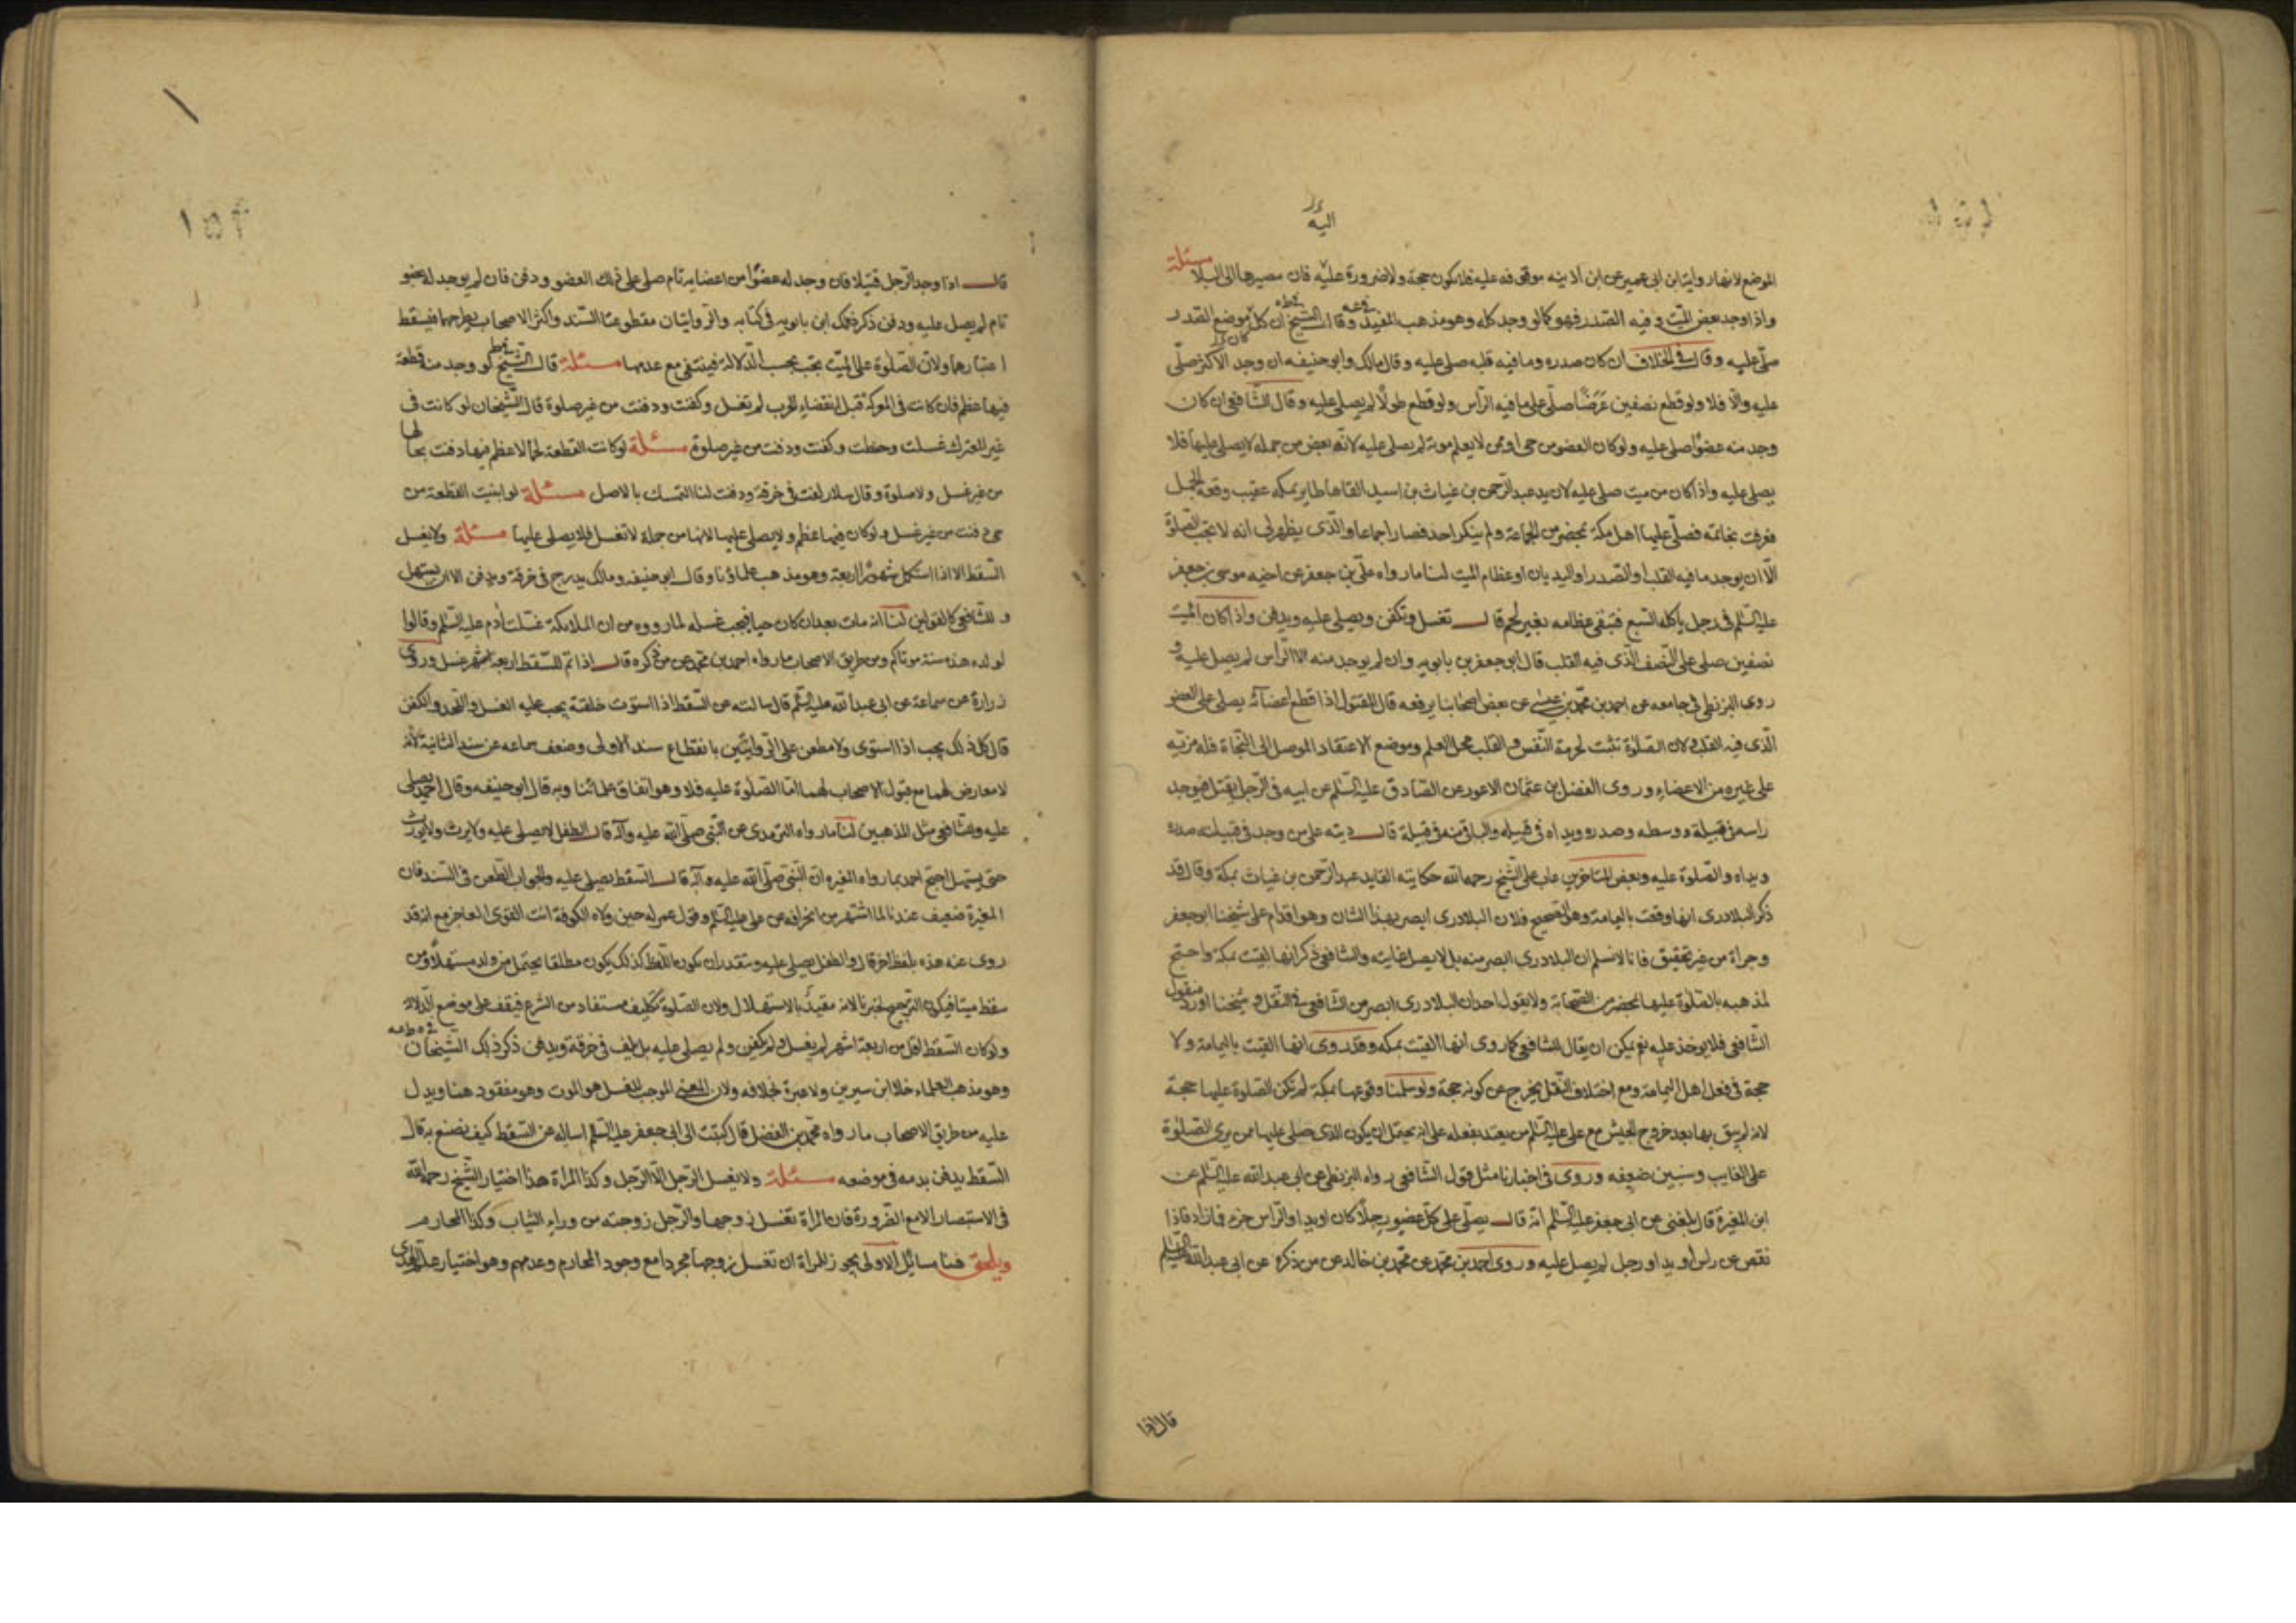 ١٥١
اليه
الموضع لانها رواية ابن ابي عمير عن ابن اذينه موقوفه عليه فلا يكون حجة ولا ضرورة عليه فان مصيرها الى البلا مسئلة
واذا وجد بعض الميت وفيه الصدر فهو كما لو وجد كله وهو مذهب المفيد وقال الشيخ ان كان موضع الصدر
صلى عليه وقال في الخلاف ان كان صدره وما فيه قلبه صلى عليه وقال مالك وابو حنيفه ان وجد الاكثر صلى
عليه والا فلا ولو قطع نصفين عرضا صلى على ما فيه الراس ولو قطع طولا لم يصل عليه وقال الشافعي ان كان
وجد منه عضوا صلى عليه ولو كان العضو من حي او ممن لا يعلم موته لم يصل عليه لانه بعض من جملة لا يصلي عليها فلا
يصلى عليه واذا كان من ميت صلى عليه لان يد عبد الرحمن بن غياث بن اسيد القاها طاير بمكه عقيب وقعة الجمل
فعرفت بخاتمه فصلى عليها اهل مكة بمحضر من الجماعة ولم ينكر احد فصار اجماعا والذى يظهر لى انه لا تجب الصلوة
الا ان يوجد ما فيه القلب او الصدر او اليدان او عظام الميت لنا ما رواه على بن جعفر عن اخيه موسى بن جعفر
عليه السلم في رجل ياكله السبع فتبقى عظامه بغير لحم قال تغسل وتكفن ويصلى عليه ويدفن واذا كان الميت
نصفين صلى على النصف الذى فيه القلب قال ابو جعفر بن بابويه وان لم يوجد منه الا الراس لم يصل عليه و
روى البزنطي في جامعه عن احمد بن محمد بن عيسى عن بعض اصحابنا يرفعه قال المقتول اذا قطع اعضائه يصلى على العضو
الذى فيه القلب ولان الصلوة تثبت لحرمة النفس والقلب محل العلم وموضع الاعتقاد الموصل الى النجاة فله مزية
على غيره من الاعضاء وروى الفضل بن عثمان الاعور عن الصادق عليه السلم عن ابيه في الرجل يقتل فيوجد
راسه في قبيلة ووسطه وصدره ويداه في قبيله والباقي منه في قبيلة قال ديته على من وجد في قبيلته صدره
ويداه والصلوة عليه وبعض المتاخرين عاب على الشيخ رحمه الله حكايته القايد عبد الرحمن بن غياث بمكة وقال قد
ذكر البلادرى انها وقعت باليمامة وهو الصحيح فلان البلادرى ابصر بهذا الشان وهو اقدام على شيخنا ابو جعفر
وجراة من غير تحقيق فانا لا نسلم ان البلادرى ابصر منه بل لا يصل غايته والشافعى ذكر انها القيت بمكة واحتج
لمذهبه بالصلوة عليها بمحضر من الصحابة ولا يقول احد ان البلادرى ابصر من الشافعى في النقل وشيخنا اورد منقول
الشافعى فلا يوخذ عليه نعم يمكن ان يقال للشافعى كما روى انها القيت بمكه فقد روى انها القيت باليمامة ولا
حجة في فعل اهل اليمامة ومع اختلاف النقل يخرج عن كونه حجة ولو سلمنا وقوعها بمكة لم تكن الصلوة عليها حجة
لانه لم يبق بها بعد خروج الجيش مع على عليه السلم من يعتد بفعله على انه يحتمل ان يكون الذى صلى عليها ممن يرى الصلوة
على الغايب وسنبين ضعفه وروى في اخبارنا مثل قول الشافعى رواه البزنطي عن ابى عبد الله عليه السلم عن
ابن المغيرة قال بلغنى عن ابى جعفر عليه السلم انه قال يصلى على كل عضو رجلا كان او يدا والراس جزء فما زاد فاذا
نقص عن راس او يد او رجل لم يصل عليه وروى احمد بن محمد عن محمد بن خالد عن من ذكره عن ابى عبد الله عليه السلم
قال اذا
١٥٢
قال اذا وجد الرجل قتيلا فان وجد له عضوا من اعضايه تام صلى على ذلك العضو ودفن فان لم يوجد له عضو
تام لم يصل عليه ودفن ذكر ذلك ابن بابويه في كتابه والروايتان مقطوعتا السند واكثر الاصحاب يطرحهما فيسقط
اعتبارهما ولان الصلوة على الميت تجب بحسب الدلالة فينتفى مع عدمها مسئلة قال الشيخ لو وجد منه قطعة
فيها عظم فان كانت في المعركة قبل انقضاء الحرب لم تغسل وكفنت ودفنت من غير صلوة قال الشيخان لو كانت في
غير المعترك غسلت وحنطت وكفنت ودفنت من غير صلوة مسئلة لو كانت القطعة لحما لا عظم فيها دفنت بحالها
من غير غسل ولا صلوة وقال سلار لفت في خرقة ودفنت لنا التمسك بالاصل مسئلة لو ابينت القطعة من
حي دفنت من غير غسل ولو كان فيها عظم ولا يصلى عليها لانها من جملة لا تغسل فلا يصلى عليها مسئلة ولا يغسل
السقط الا اذا استكمل شهورا اربعة وهو مذهب علماؤنا وقال ابو حنيفه ومالك يدرج في خرقة ويدفن الا ان يستهل
وللشافعى كالقولين لنا انه مات بعد ان كان حيا فيجب غسله لما رووه من ان الملايكة غسلت ادم عليه السلم وقالوا
لولده هذه سنة موتاكم ومن طريق الاصحاب ما رواه احمد بن محمد عن من ذكره قال اذا تم للسقط اربعة اشهر غسل وروى
زرارة عن سماعة عن ابى عبد الله عليه السلم قال سالته عن السقط اذا استوت خلقته يجب عليه الغسل واللحد والكفن
قال كل ذلك يجب اذا استوى ولا مطعن على الروايتين بانقطاع سند الاولى وضعف سماعه عن سند الثانية لانه
لا معارض لهما مع قبول الاصحاب لهما اما الصلوة عليه فلا وهو اتفاق علمائنا وبه قال ابو حنيفه وقال احمد يصلى
عليه وللشافعى مثل المذهبين لنا ما رواه الترمدى عن النبي صلى الله عليه وآله قال الطفل لا يصلى عليه ولا يرث ولا يورث
حتى يستهل احتج احمد بما رواه المغيره ان النبى صلى الله عليه وآله قال السقط يصلى عليه والجواب الطعن في السند فان
المغيرة ضعيف عندنا لما اشتهر من انحرافه عن على عليه السلم وقول عمر له حين ولاه الكوفة انت القوى الفاجر مع انه قد
روى عنه هذه بلفظ اخر قال والطفل يصلى عليه وبتقدير ان يكون اللفظ كذلك يكون مطلقا يحتمل من ولد مستهلا ومن
سقط ميتا فيكون الترجيح لخبرنا لانه مقيد بالاستهلال ولان الصلوة تكليف مستفاد من الشرع فيقف على موضع الدلالة
ولو كان السقط اقل من اربعة اشهر لم يغسل ولم يكفن ولم يصلى عليه بل يلف في خرقة ويدفن ذكر ذلك الشيخان
وهو مذهب العلماء خلا ابن سيرين ولا عبرة بخلافه ولان المعنى الموجب للغسل هو الموت وهو مفقود هنا ويدل
عليه من طريق الاصحاب ما رواه محمد بن الفضل قال كتبت الى ابى جعفر عليه السلم اساله عن السقط كيف يصنع به قال
السقط يدفن بدمه في موضعه مسئلة ولا يغسل الرجل الا الرجل وكذا المراة هذا اختيار الشيخ رحمه الله
في الاستبصار الا مع الضرورة فان المراة تغسل زوجها والرجل زوجته من وراء الثياب وكذا المحارم
ويلحق هنا مسائل الاولى يجوز للمراة ان تغسل زوجها مجردا مع وجود المحارم وعدمهم وهو اختيار علم الهدى